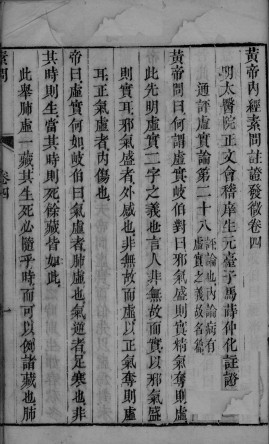 黃帝內經素問註證發微卷四
明太醫院正文會稽庠生元臺子馬蒔仲化註證
通評虛實論第二十八 評論也內論病有虛實之義故名篇
黃帝問曰何謂虛實岐伯對曰邪氣盛則實精氣奪則虛
此先明虛實二字之義也言人非無故而實以邪氣盛
則實耳邪氣盛者外感也非無故而虛以正氣奪則虛
耳正氣虛者內傷也
帝曰虛實何如岐伯曰氣虛者肺虛也氣逆者足寒也非
其時則生當其時則死餘藏皆如此
此舉肺虛一藏其生死必隨乎時而可以例諸藏也肺
素問
卷四